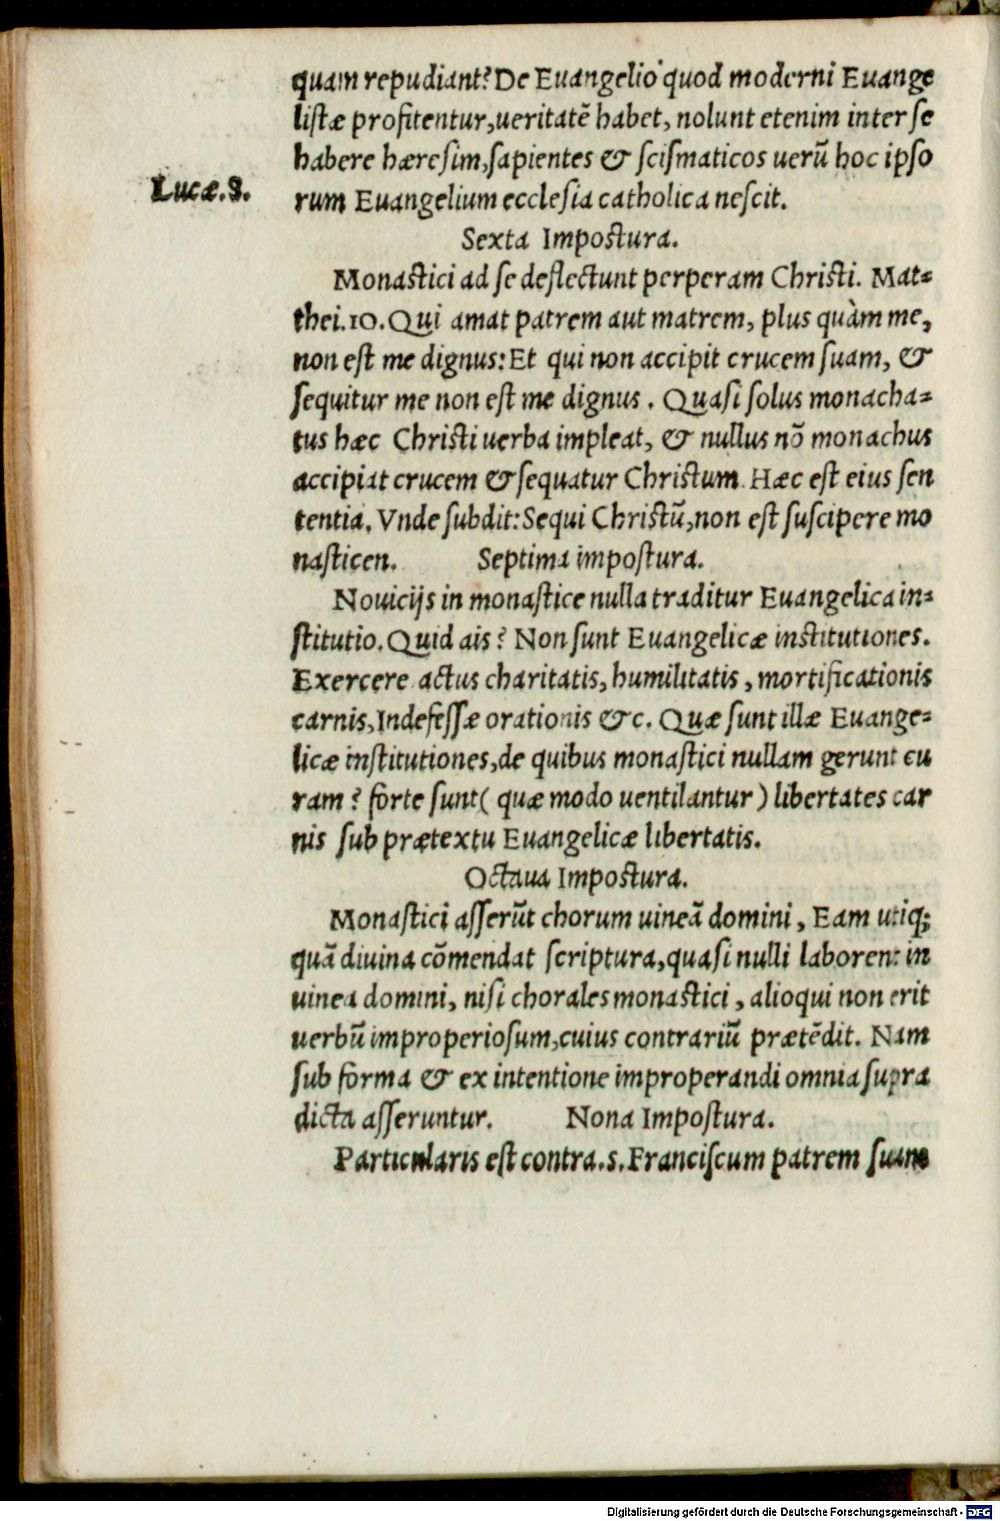 quam repudiant? De Euangelio quod moderni Euange
listæ profitentur, ueritatē habet, nolunt etenim inter se
habere hæresim, sapientes & scismaticos uerū hoc ipso
Lucæ. 8.
rum Euangelium ecclesia catholica nescit.
Sexta Impostura.
Monastici ad se deflectunt perperam Christi. Mat=
thei. 10. Qui amat patrem aut matrem, plus quàm me,
non est me dignus: Et qui non accipit crucem suam, &
sequitur me non est me dignus. Quasi solus monacha=
tus hæc Christi uerba impleat, & nullus nō monachus
accipiat crucem & sequatur Christum. Hæc est eius sen
tentia. Vnde subdit: Sequi Christū, non est suscipere mo
nasticen. Septima impostura.
Nouicijs in monastice nulla traditur Euangelica in=
stitutio. Quid ais? Non sunt Euangelicæ institutiones.
Exercere actus charitatis, humilitatis, mortificationis
carnis, Indefessæ orationis &c. Quæ sunt illæ Euange=
licæ institutiones, de quibus monastici nullam gerunt cu
ram? forte sunt (quæ modo uentilantur) libertates car
nis sub prætextu Euangelicæ libertatis.
Octaua Impostura.
Monastici asserūt chorum uineā domini, Eam utiq;
quā diuina cōmendat scriptura, quasi nulli laborent in
uinea domini, nisi chorales monastici, alioqui non erit
uerbū improperiosum, cuius contrariū prætēdit. Nam
sub forma & ex intentione improperandi omnia supra
dicta asseruntur. Nona Impostura.
Particularis est contra. s. Franciscum patrem suum
Digitalisierung gefördert durch die Deutsche Forschungsgemeinschaft - DFG